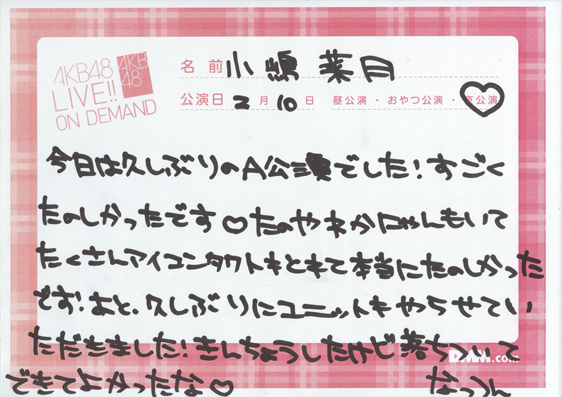 AKB48
LIVE!!
ON DEMAND
AKB
48
名前 小嶋菜月
公演日 2月10日 昼公演・おやつ公演・夜公演
今日は久しぶりのA公演でした!すごく
たのしかったです♡たのやネかにゃんもいて
たくさんアイコンタクトもとれて本当にたのしかった
です!あと、久しぶりにユニットもやらせてい
ただきました!きんちょうしたけど落ちついて
.com
できてよかったな♡ なっつん